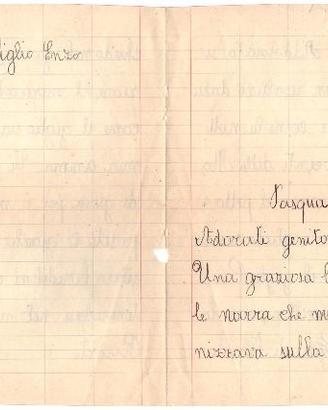 figlio Enzo
Pasqua
Adorati genito
Una graziosa l
le narra che m
nizzava sulla